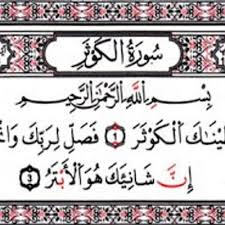 سُورَةُ الكَوْثَر
بِسْمِ اللَّهِ الرَّحْمَٰنِ الرَّحِيمِ
الْكَوْثَرَ ۝١ فَصَلِّ لِرَبِّكَ
إِنَّ شَانِئَكَ هُوَ الْأَبْتَرُ ۝٣